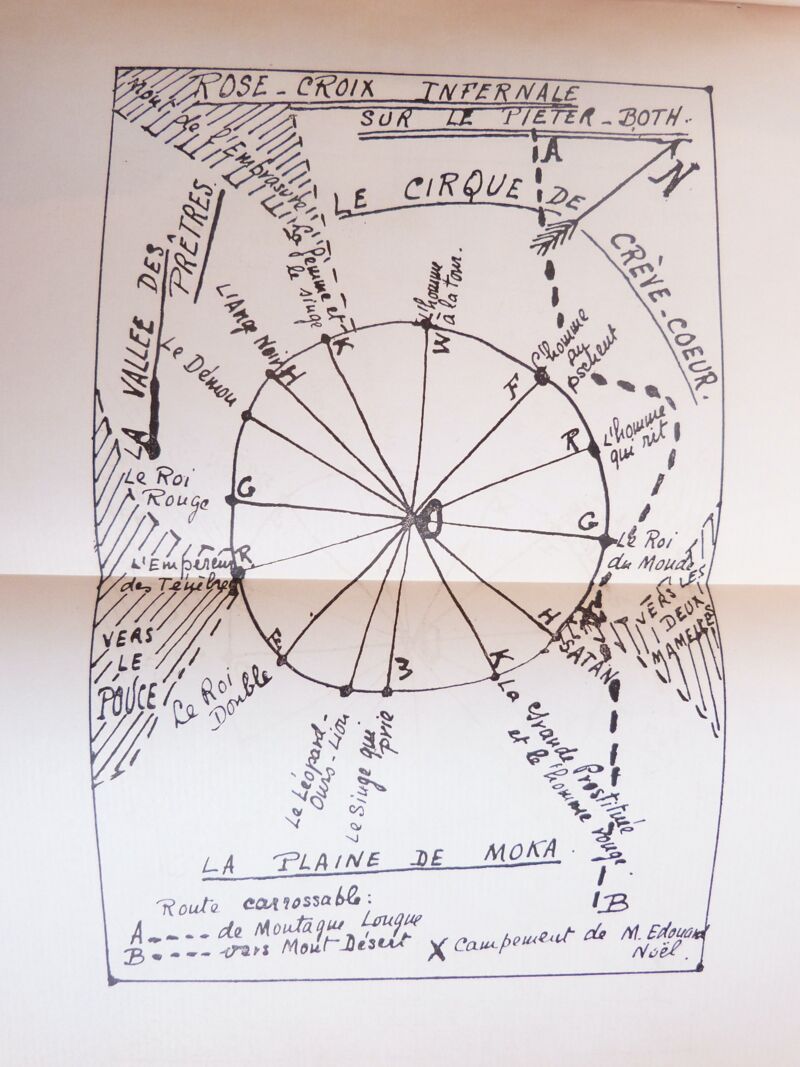 ROSE-CROIX INFERNALE
SUR LE PIETER-BOTH.
Mont de l'Embrasure
A
N
LE CIRQUE DE
CRÈVE-COEUR.
LA VALLEE DES
PRÊTRES.
La femme et
le singe
K
L'homme
à la tour.
W
L'homme
au
pschent
F
L'homme
qui rit
R
L'Ange Noir
H
Le Démon
Le Roi
Rouge
G
Le Roi
du Monde
G
L'Empereur
des Ténèbres
R
VERS LES
DEUX
MAMELLES
VERS
LE
POUCE
Le Roi
Double
H
SATAN
K
La Grande Prostituée
et le l'homme rouge.
3
Le Singe qui
prie
Le Léopard-
Ours-Lion
LA PLAINE DE MOKA.
B
Route carrossable:
A---- de Montagne Longue
B---- vers Mont Désert
X Campement de M. Edouard
Noël.